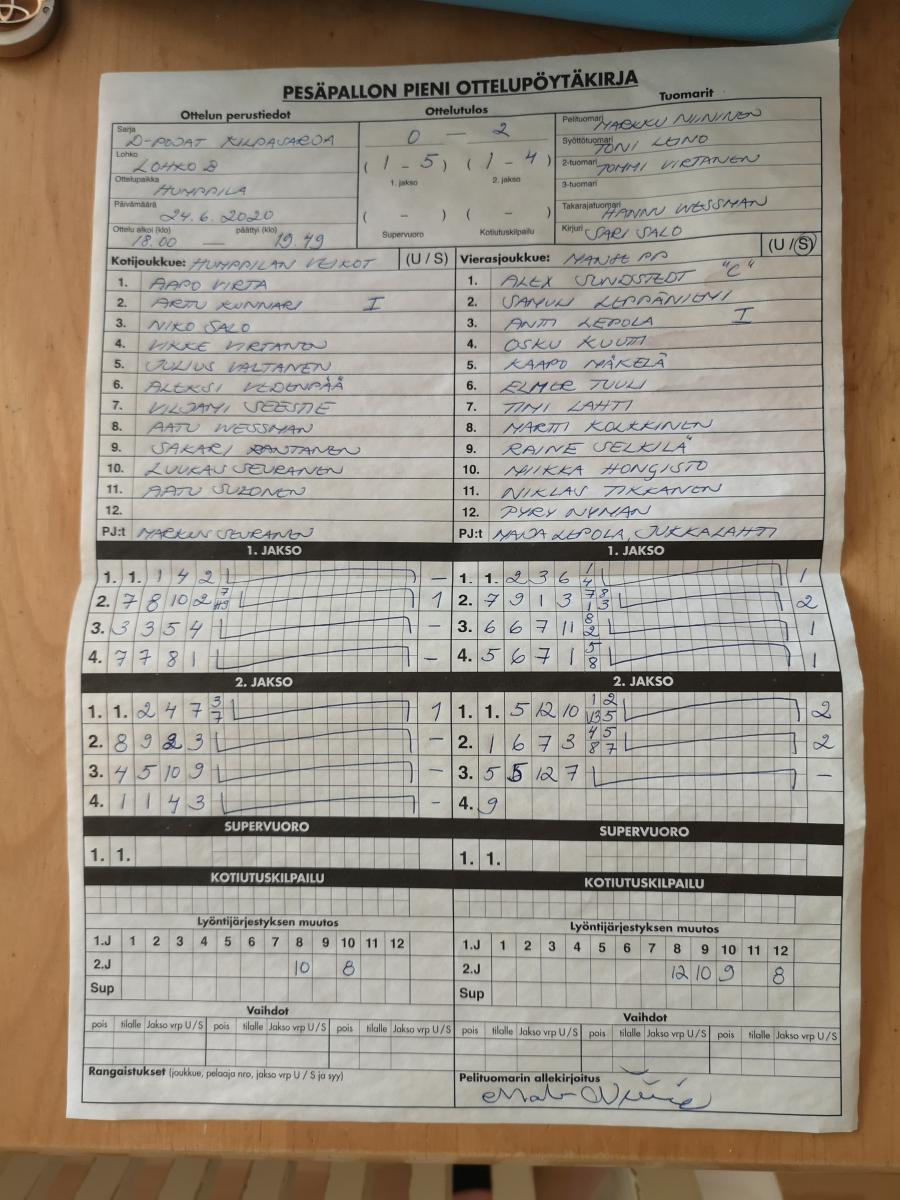 PESÄPALLON PIENI OTTELUPÖYTÄKIRJA
Ottelun perustiedot Ottelutulos Tuomarit
Sarja D-POJAT KILPASARJA
Lohko LOHKO B
Ottelupaikka HUMPPILA
Päivämäärä 24.6.2020
Ottelu alkoi (klo) päättyi (klo)
18.00 — 19.49
0 — 2
( 1 - 5 ) ( 1 - 4 )
1. jakso 2. jakso
( - ) ( - )
Supervuoro Kotiutuskilpailu
Pelituomari MARKKU NIININEN
Syöttötuomari TONI LEINO
2-tuomari TOMMI VIRTANEN
3-tuomari
Takarajatuomari HANNU WESSMAN
Kirjuri SARI SALO
Kotijoukkue: HUMPPILAN VEIKOT (U / S)
1. AAPO VIRTA
2. ARTU KUNNARI I
3. NIKO SALO
4. VIKKE VIRTANEN
5. JULIUS VALTANEN
6. ALEKSI VEDENPÄÄ
7. VILJAMI SEESTIE
8. AATU WESSMAN
9. SAKARI RANTANEN
10. LUUKAS SEURANEN
11. AATU SUZONEN
12.
PJ:t MARKUS SEURANEN
Vierasjoukkue: MANSE PP (U / S)
1. ALEX SUNDSTEDT "C"
2. SAMULI LEPPÄNIEMI
3. ANTTI LEPOLA I
4. OSKU KUUTTI
5. KAAPO MÄKELÄ
6. ELMER TUULI
7. TIMI LAHTI
8. MARTTI KOLKKINEN
9. RAINE SELKILÄ
10. MIIKKA HONGISTO
11. NIKLAS TIKKANEN
12. PYRY NYMAN
PJ:t MAIJA LEPOLA, JUKKA LAHTI
1. JAKSO
1. 1. 1 4 2 –
2. 7 8 10 2 1
3. 3 3 5 4 –
4. 7 7 8 1 –
2. JAKSO
1. 1. 2 4 7 3 7 1
2. 8 9 2 3 –
3. 4 5 10 9 –
4. 1 1 4 3 –
SUPERVUORO
1. 1.
KOTIUTUSKILPAILU
1. JAKSO
1. 1. 2 3 6 1 4 1
2. 7 9 1 3 7 8 1 3 2
3. 6 6 7 11 8 2 1
4. 5 6 7 1 5 8 1
2. JAKSO
1. 1. 5 12 10 1 2 5 2
2. 1 6 7 3 4 5 8 7 2
3. 5 5 12 7 –
4. 9
SUPERVUORO
1. 1.
KOTIUTUSKILPAILU
Lyöntijärjestyksen muutos
1.J 1 2 3 4 5 6 7 8 9 10 11 12
2.J 10 8
Sup
Vaihdot
pois tilalle Jakso vrp U / S pois tilalle Jakso vrp U / S pois tilalle Jakso vrp U / S
Rangaistukset (joukkue, pelaaja nro, jakso vrp U / S ja syy)
Lyöntijärjestyksen muutos
1.J 1 2 3 4 5 6 7 8 9 10 11 12
2.J 12 10 9 8
Sup
Vaihdot
pois tilalle Jakso vrp U / S pois tilalle Jakso vrp U / S pois tilalle Jakso vrp U / S
Pelituomarin allekirjoitus